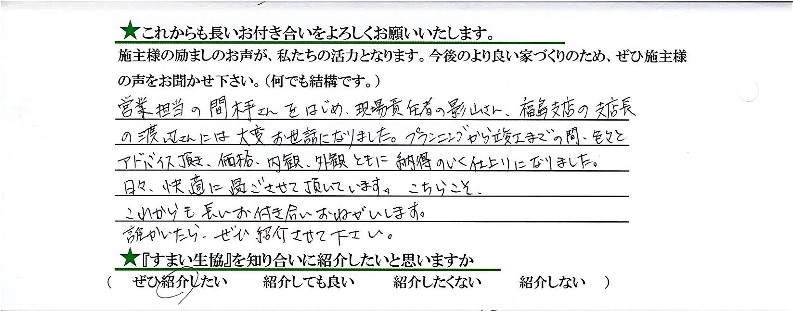 ★これからも長いお付き合いをよろしくお願いいたします。
施主様の励ましのお声が、私たちの活力となります。今後のより良い家づくりのため、ぜひ施主様
の声をお聞かせ下さい。(何でも結構です。)
営業担当の間木平さんをはじめ、現場責任者の影山さん、福島支店の支店長
の渡辺さんには大変お世話になりました。プランニングから竣工までの間、色々と
アドバイス頂き、価格、内観、外観ともに納得のいく仕上りになりました。
日々、快適に過ごさせて頂いています。こちらこそ、
これからも長いお付き合いおねがいします。
誰かいたら、ぜひ紹介させて下さい。
★『すまい生協』を知り合いに紹介したいと思いますか
( ぜひ紹介したい 紹介しても良い 紹介したくない 紹介しない )